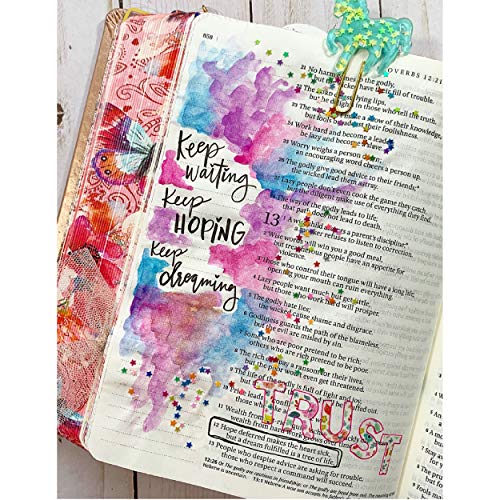 658
OVERBS 12:21
Keep
waiting
Keep
HOPING
Keep
dreaming
21 No harm to the godly,
but the wicked their fill of trouble.
lying lips,
but he delights in those who tell the truth.
make a show of their knowledge,
but fools broadcast their foolishness.
24 Work hard and become a leader;
be lazy and become a
25 Worry weighs a person down;
an encouraging word cheers a person up.
26 The godly give good advice to their friends;*
the wicked lead them astray.
27 Lazy people don't even cook the game they catch,
but the diligent make use of everything they find.
28 The way of the godly leads to life;
that path does not lead to death.
13
1 A wise child accepts a parent's discipline;*
a mocker refuses to listen to correction.
2 Wise words will win you a good meal,
but treacherous people have an appetite for
violence.
3 Those who control their tongue will have a long life;
opening your mouth can ruin everything.
4 Lazy people want much but get little,
but those who work hard will prosper.
5 The godly hate lies;
the wicked cause shame and disgrace.
6 Godliness guards the path of the blameless,
but the evil are misled by sin.
7 Some who are poor pretend to be rich;
others who are rich pretend to be poor.
8 The rich can pay a ransom for their lives,
but the poor won't even get threatened.
9 The life of the godly is full of light and joy,
but the light will be snuffed out.
TRUST
11 Wealth from
wealth from hard work grows over time.
12 Hope deferred makes the heart sick,
but a dream fulfilled is a tree of life.
13 People who despise advice are asking for trouble;
those who respect a command will succeed.